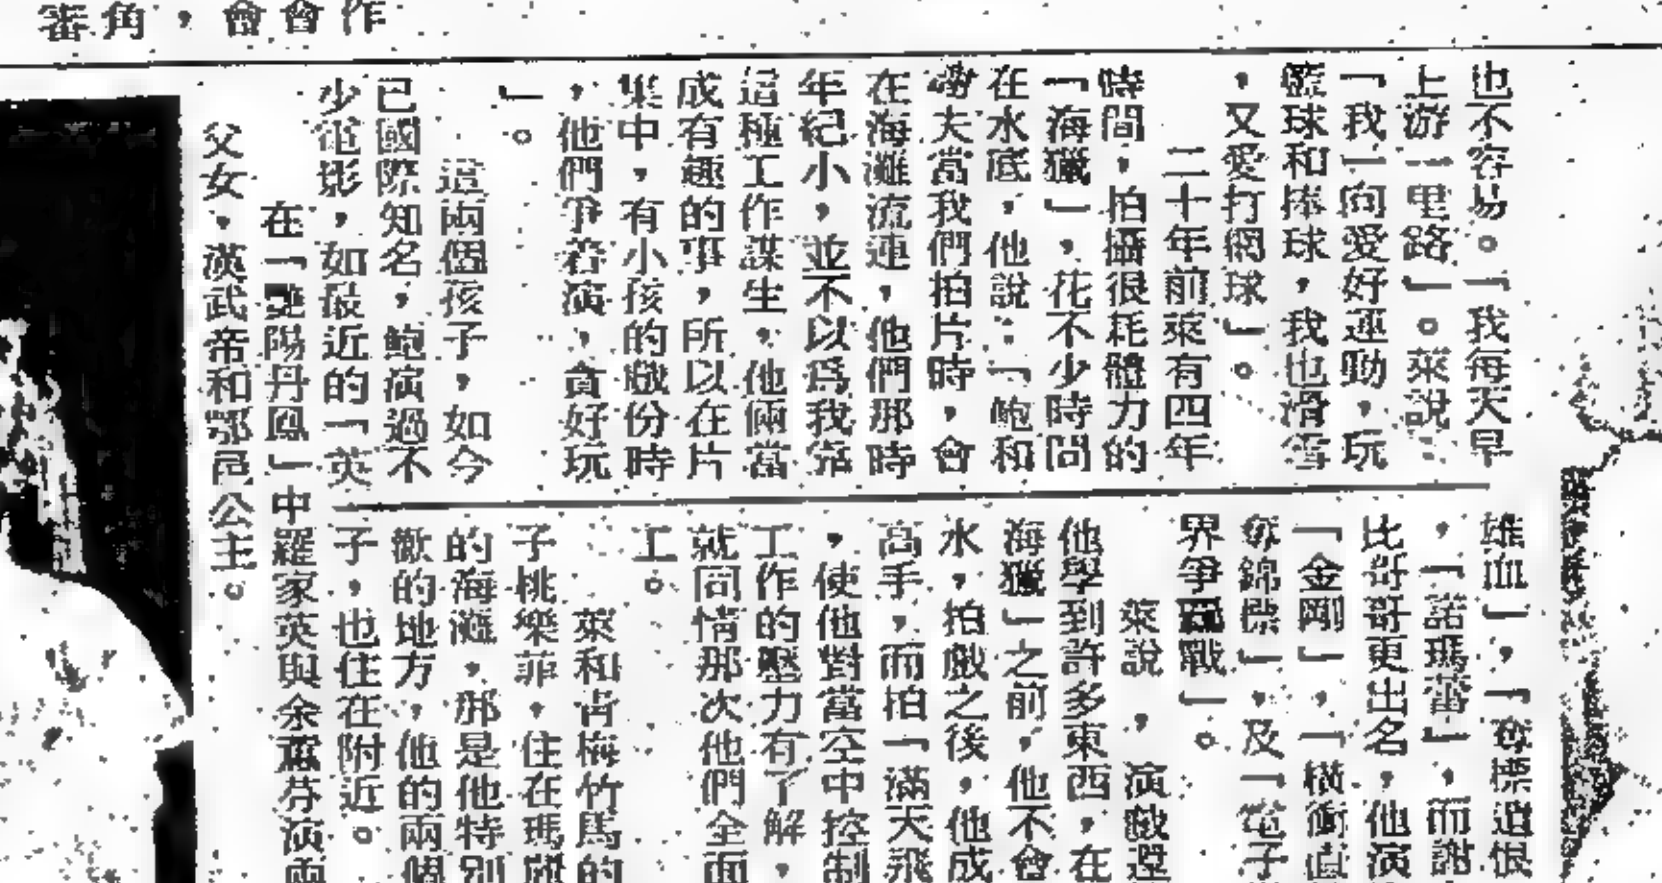 審角，會會作
也不容易。「我每天早
上游一里路」。萊說：
「我一向愛好運動，玩
籃球和棒球，我也滑雪
，又愛打網球」。
二十年前萊有四年
時間，拍攝很耗體力的
「海獵」，花不少時間
在水底，他說：「鮑和
夫當我們拍片時，會
在海灘流連，他們那時
年紀小，並不以為我靠
這種工作謀生，他倆當
成有趣的事，所以在片
集中，有小孩的戲份時
，他們爭着演，貪好玩
」。
這兩個孩子，如今
已國際知名，鮑演過不
少電影，如最近的「英
雄血」，「奪標遺恨
，「諾瑪蕾」，而謝
比哥哥更出名，他演
「金剛」，「橫衝直
奪錦標」，及「電子
界爭霸戰」。
萊說，演戲
他學到許多東西，在
海獵」之前，他不會
水，拍戲之後，他成
高手，而拍「滿天飛
，使他對當空中控制
工作的壓力有了解，
就同情那次他們全面
工。
萊和青梅竹馬的
子桃樂菲，住在瑪
的海灘，那是他特別
歡的地方，他的兩個
子，也住在附近。
在「艷陽丹鳳」中羅家英與余蕙芬演兩
父女，漢武帝和鄂邑公主。